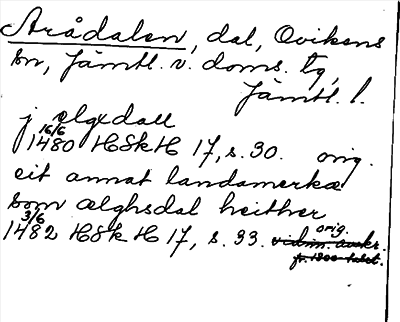 Arådalen, dal, Ovikens
sn, Jämtl. v. doms. tg,
Jämtl. l.
j ælgxdall
16/6
1480 HSkH 17, s. 30. orig.
eit annat landamerkæ
som ælghsdal heither
3/6
1482 HSkH 17, s. 33. orig.